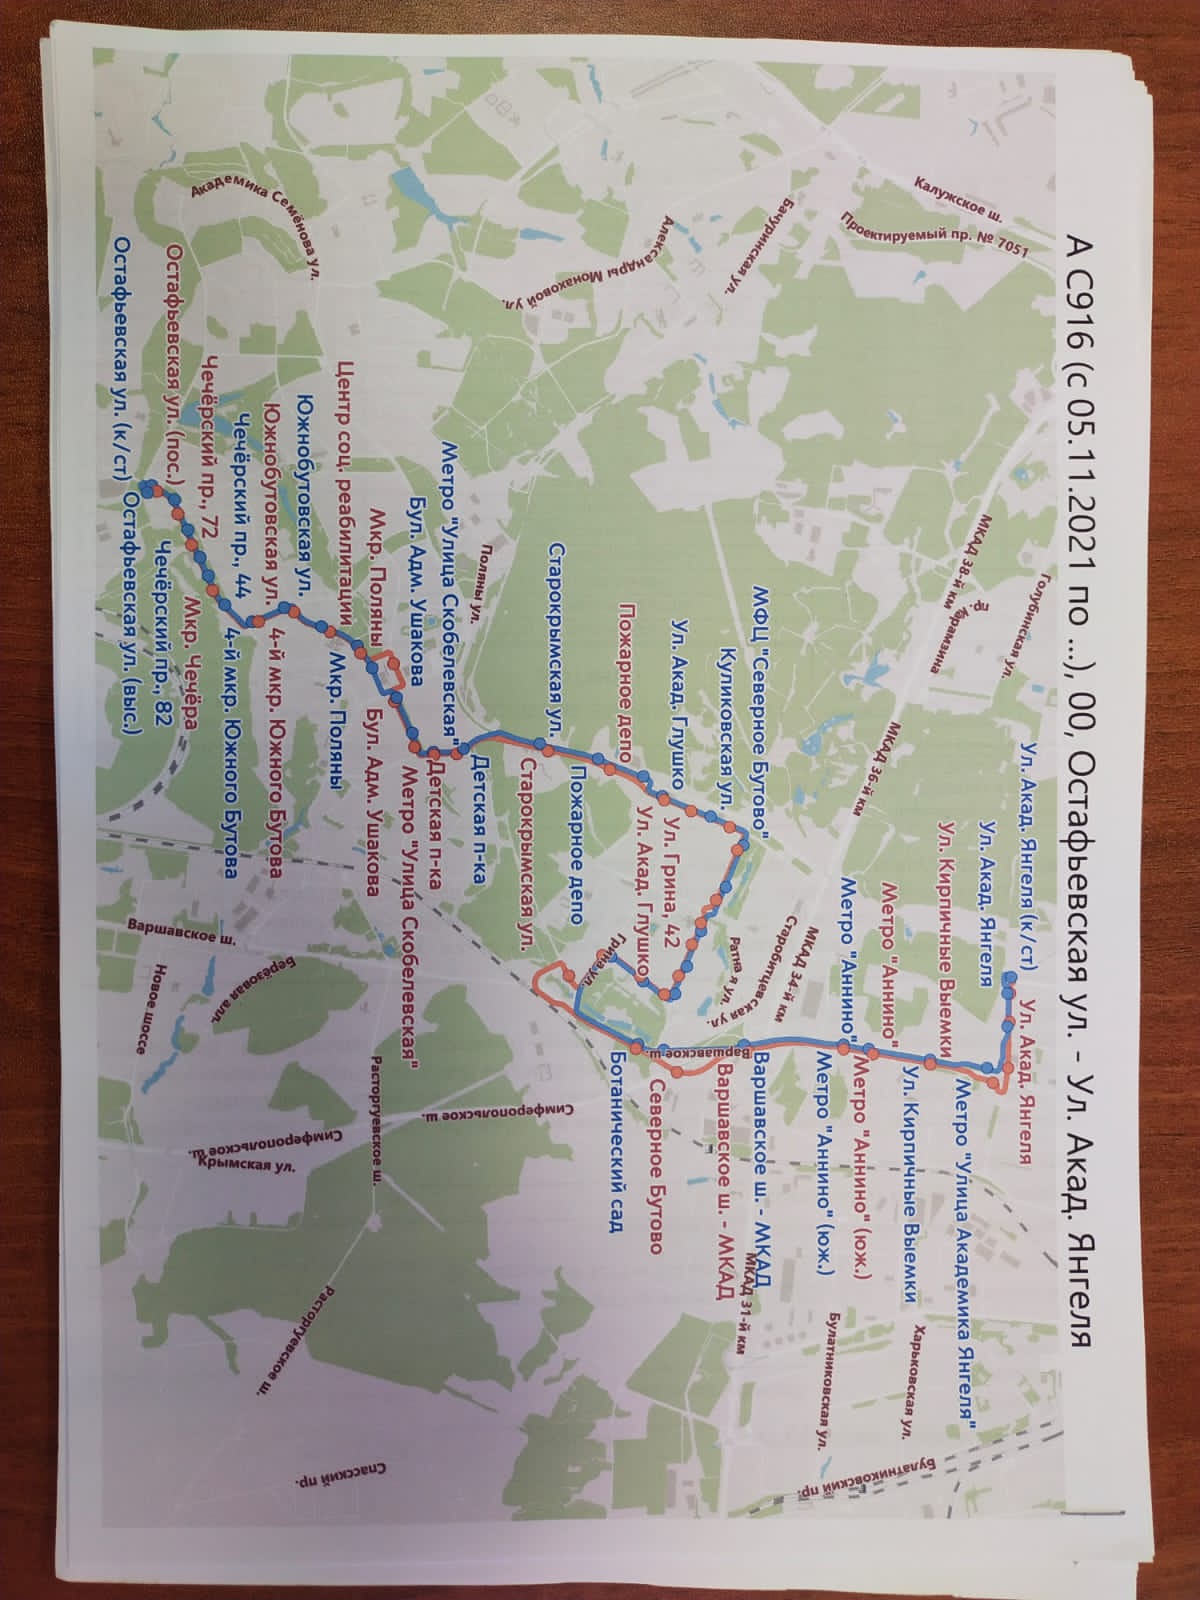 А С916 (с 05.11.2021 по ...), 00, Остафьевская ул. – Ул. Акад. Янгеля
Калужское ш.
Проектируемый пр. № 7051
Бачуринская ул.
Александры Монаховой ул.
Академика Семёнова ул.
Голубинская ул.
МКАД 38-й км
МКАД 36-й км
Ул. Акад. Янгеля (к/ст)
Ул. Акад. Янгеля
Ул. Акад. Янгеля
Метро "Улица Академика Янгеля"
Ул. Кирпичные Выемки
Ул. Кирпичные Выемки
Метро "Аннино"
Метро "Аннино" (юж.)
Метро "Аннино"
Метро "Аннино" (юж.)
МКАД 34-й км
Старобитцевская ул.
Варшавское ш. - МКАД
Варшавское ш. - МКАД
Варшавское ш.
МКАД 31-й км
Харьковская ул.
Булатниковская ул.
Булатниковский пр.
МФЦ "Северное Бутово"
Куликовская ул.
Ратная ул.
Ул. Акад. Глушко
Ул. Грина, 42
Ул. Акад. Глушко
Грина ул.
Северное Бутово
Ботанический сад
Пожарное депо
Пожарное депо
Старокрымская ул.
Старокрымская ул.
Поляны ул.
Детская п-ка
Метро "Улица Скобелевская"
Детская п-ка
Бул. Адм. Ушакова
Метро "Улица Скобелевская"
Мкр. Поляны
Бул. Адм. Ушакова
Центр соц. реабилитации
Мкр. Поляны
Южнобутовская ул.
Южнобутовская ул.
4-й мкр. Южного Бутова
Чечёрский пр., 44
4-й мкр. Южного Бутова
Чечёрский пр., 72
Мкр. Чечёра
Остафьевская ул. (пос.)
Чечёрский пр., 82
Остафьевская ул. (к/ст)
Остафьевская ул. (выс.)
Варшавское ш.
Берёзовая алл.
Новое шоссе
Расторгуевское ш.
Симферопольское ш.
Симферопольское ш.
Крымская ул.
Расторгуевское ш.
Спасский пр.